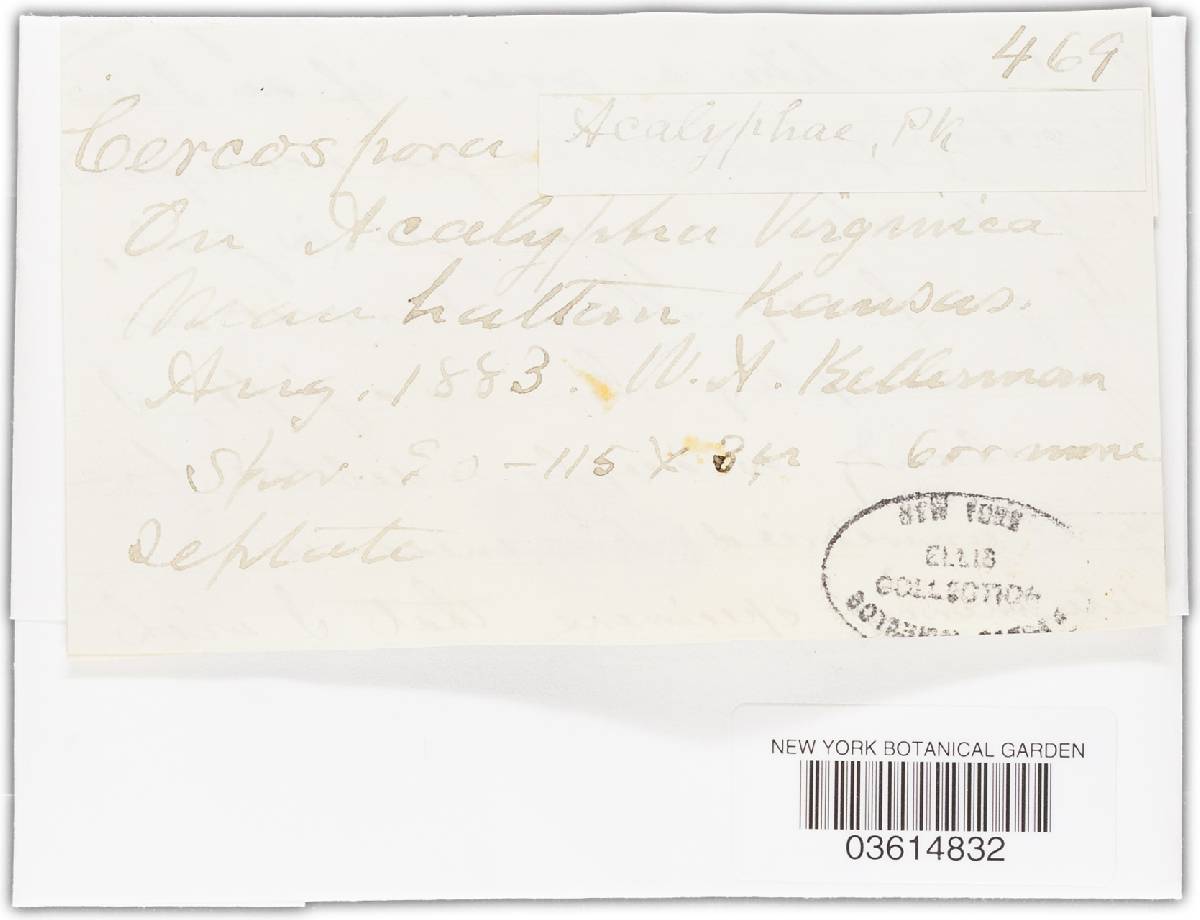 469
Cercospora Acalyphae, Pk
On Acalypha Virginica
Manhattan Kansas.
Aug. 1883. W. A. Kellerman
Spor. 20-115 X 3µ — 6 or more
septate
NEW YORK
ELLIS
COLLECTION
BOTANICAL GARDEN
NEW YORK BOTANICAL GARDEN
03614832